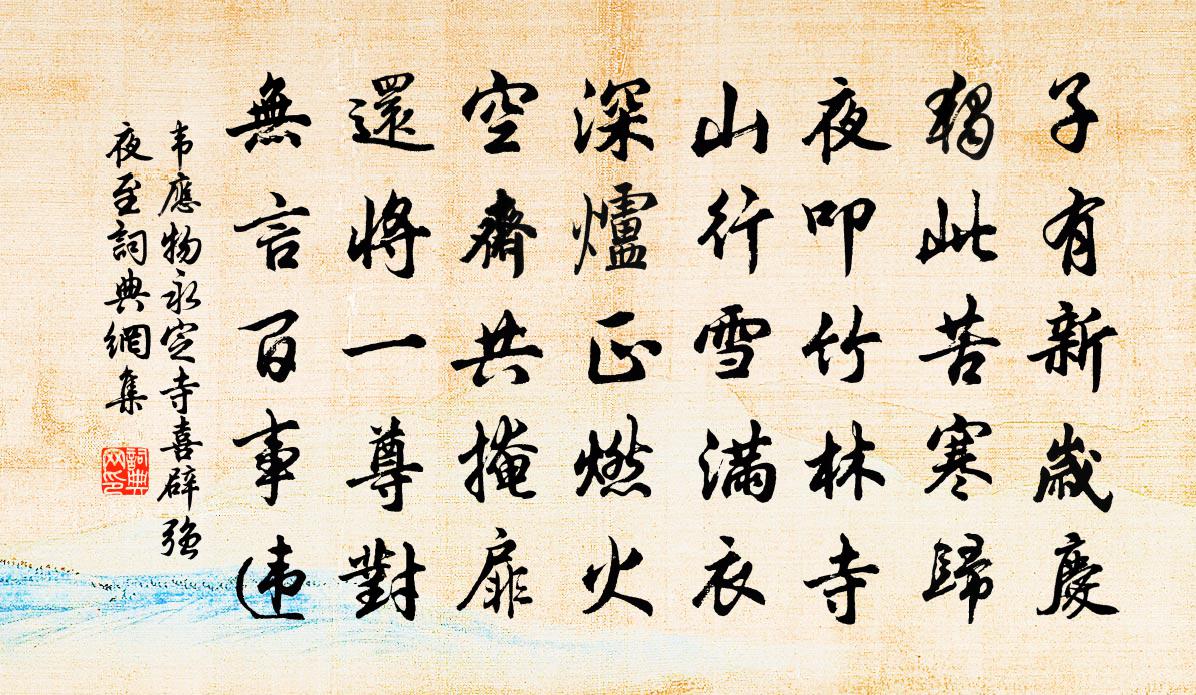 子有新歲慶
獨此苦寒歸
夜叩竹林寺
山行雪滿衣
深爐正燃火
空齋共掩扉
還將一尊對
無言百事违
韦應物永定寺喜辟強
夜至詞典網集
詞典
网印